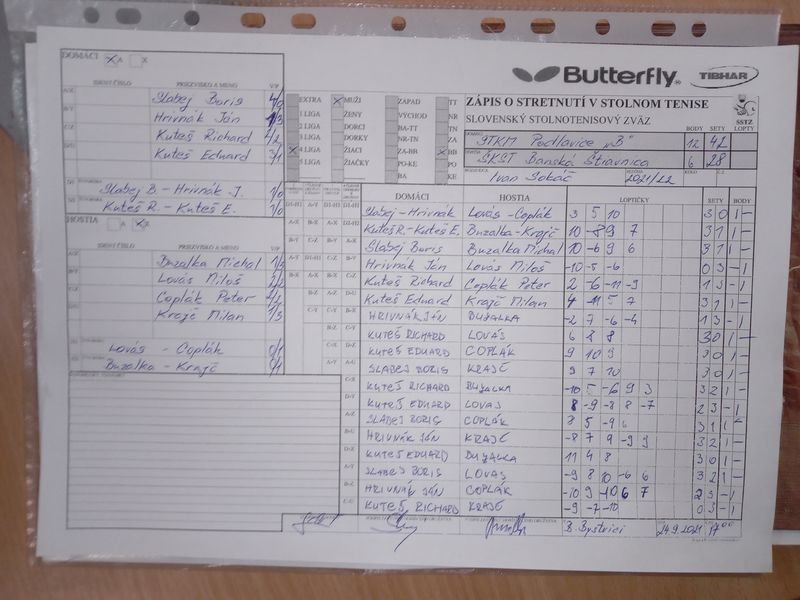 Butterfly
TIBHAR
DOMÁCI X A X
IDENT. ČÍSLO PRIEZVISKO A MENO V/P
Slabej Boris 4/0
Hrivnák Ján 1/3
Kuteš Richard 2/2
Kuteš Eduard 3/1
Slabej B - Hrivnák J. 1/0
Kuteš R. - Kuteš E. 1/0
HOSTIA A X
IDENT. ČÍSLO PRIEZVISKO A MENO V/P
Buzalka Michal
Lovás Miloš
Coplák Peter
Krajč Milan 1/3
Lovás - Coplák 0/1
Buzalka - Krajč 0/1
EXTRA X MUŽI ZÁPAD TT
1 LIGA ŽENY VÝCHOD NR
2 LIGA DORCI BA-TT TN
3 LIGA DORKY NR-TN ZA
X 4 LIGA ŽIACI ZA-BB X BB
5 LIGA ŽIAČKY PO-KE PO
BA KE
ZÁPIS O STRETNUTÍ V STOLNOM TENISE
SLOVENSKÝ STOLNOTENISOVÝ ZVÄZ
SSTZ
BODY SETY LOPTY
STKM Podlavice "B" 12 42
ŠKST Banská Štiavnica 6 28
Ivan Sokáč 2021/22
DOMÁCI HOSTIA LOPTIČKY SETY BODY
Slabej - Hrivnák Lovás - Coplák 3 5 10 3 0 1 -
Kuteš R. - Kuteš E. Buzalka - Krajč 10 -8 9 7 3 1 1 -
Slabej Boris Buzalka Michal 10 -6 9 6 3 1 1 -
Hrivnák Ján Lovás Miloš -10 -5 -6 0 3 - 1
Kuteš Richard Coplák Peter 2 -6 -11 -9 1 3 - 1
Kuteš Eduard Krajč Milan 4 -11 5 7 3 1 1 -
HRIVNÁK JÁN BUZALKA -2 7 -6 -4 1 3 - 1
KUTEŠ RICHARD LOVÁS 6 2 8 3 0 1 -
KUTEŠ EDUARD COPLÁK 9 10 9 3 0 1 -
SLABEJ BORIS KRAJČ 9 7 10 3 0 1 -
KUTEŠ RICHARD BUZALKA -10 5 -6 9 3 3 2 1 -
KUTEŠ EDUARD LOVÁS 8 -9 -8 8 -7 2 3 - 1
SLABEJ BORIS COPLÁK 8 5 -9 6 3 1 1 -
HRIVNÁK JÁN KRAJČ -8 7 9 -9 9 3 2 1 -
KUTEŠ EDUARD BUZALKA 11 4 8 3 0 1 -
SLABEJ BORIS LOVÁS -9 8 10 -6 6 3 2 1 -
HRIVNÁK JÁN COPLÁK 2 3 - 1
KUTEŠ RICHARD KRAJČ -9 -7 -10 0 3 - 1
B. Bystrici 24.9.2021 17 00